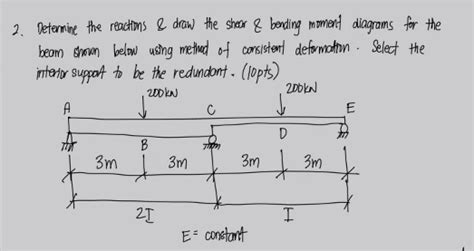 2. Determine the reactions & draw the shear & bending moment diagrams for the
beam shown below using method of consistent deformation. Select the
interior support to be the redundant. (10pts)
200kN 200kN
A C E
B D
3m 3m 3m 3m
2I I
E = constant